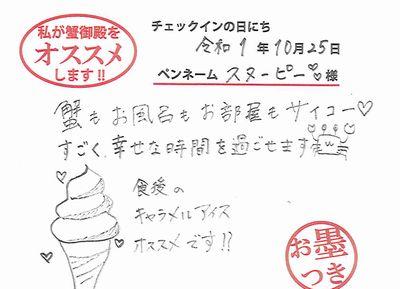 私が蟹御殿を
オススメ
します!!
チェックインの日にち
令和1年10月25日
ペンネーム スヌーピー♡様
蟹もお風呂もお部屋もサイコー♡
すごく幸せな時間を過ごせます
食後の
キャラメルアイス
オススメです!!
お墨
つき